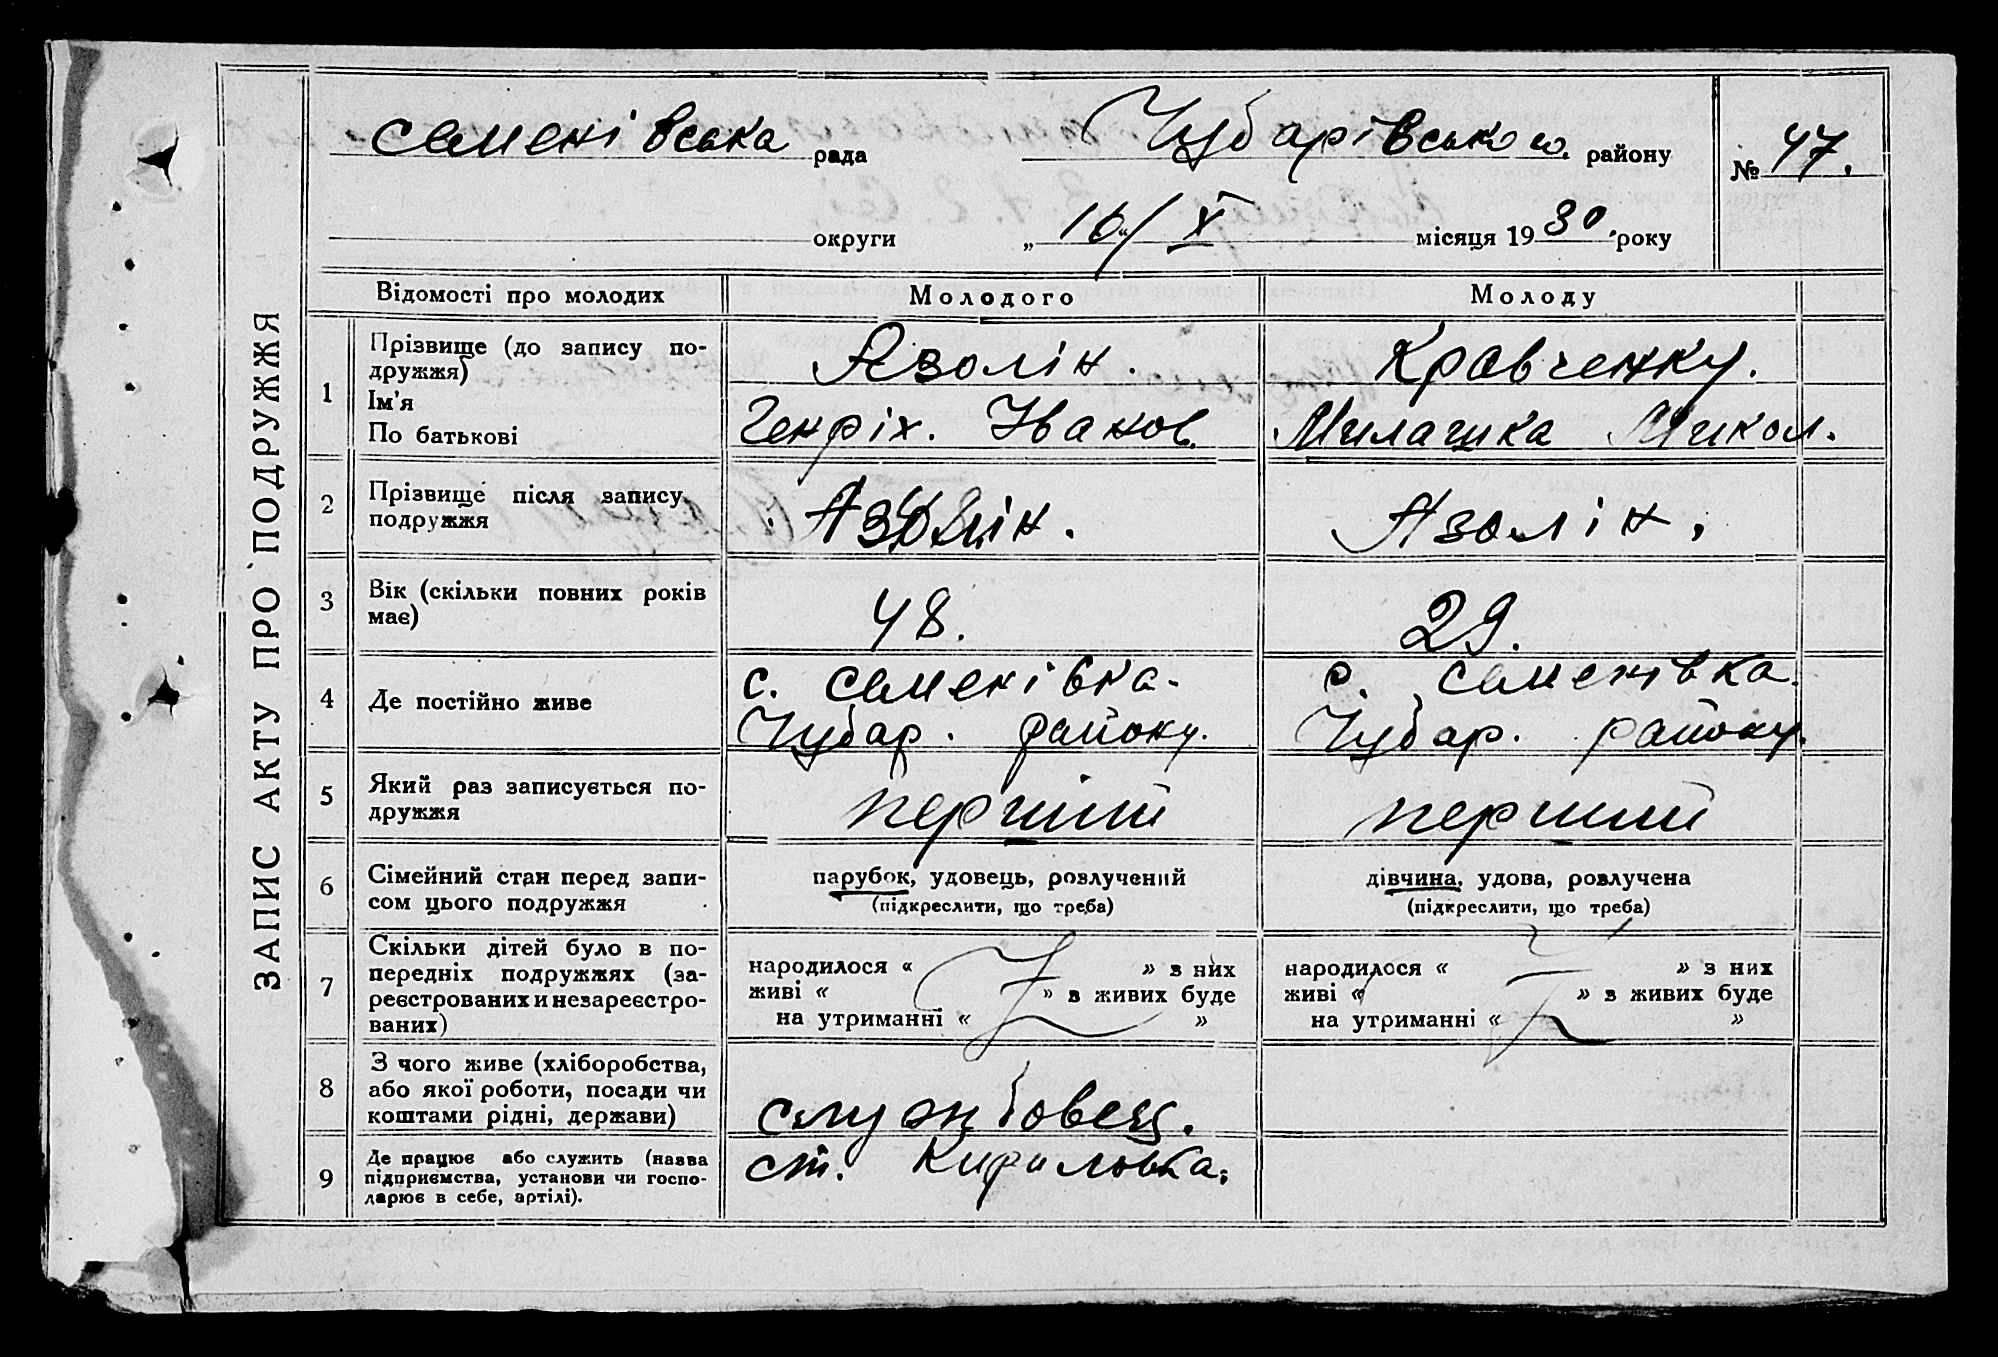 ЗАПИС АКТУ ПРО ПОДРУЖЖЯ
семенівська рада Чубарівського району № 47.
округи „16“/X місяця 1930 року
Відомості про молодих Молодого Молоду
1 Прізвище (до запису по- Азолін. Кравченку.
дружжя)
Ім'я
По батькові Генріх. Іванов. Милашка Микол.
2 Прізвище після запису Азолін. Азолін.
подружжя
3 Вік (скільки повних років 48. 29.
має)
4 Де постійно живе с. семенівка. с. семенівка.
Чубар. району. Чубар. району.
5 Який раз записується по- перший перший
дружжя
6 Сімейний стан перед запи- парубок, удовець, розлучений дівчина, удова, розлучена
сом цього подружжя (підкреслити, що треба) (підкреслити, що треба)
7 Скільки дітей було в по- народилося « » з них народилося « » з них
передніх подружжях (за- живі « » з живих буде живі « » з живих буде
реєстрованих и незареєстро- на утриманні « » на утриманні « »
ваних)
8 З чого живе (хліборобства,
або якої роботи, посади чи
коштами рідні, держави) службовец.
9 Де працює або служить (назва ст. Кириловка.
підприємства, установи чи госпо-
дарює в себе, артілі).